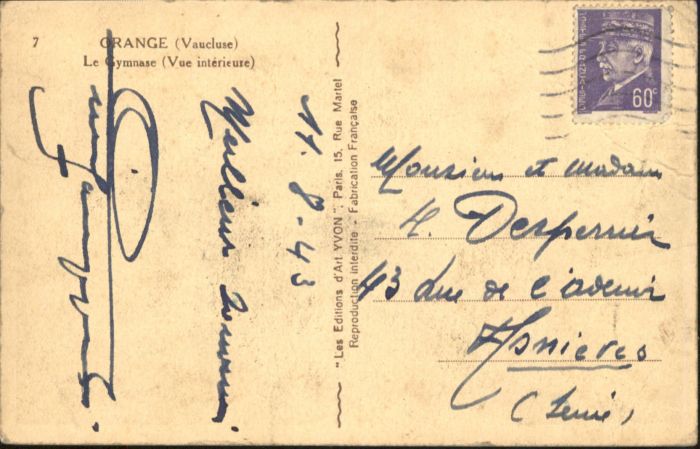 7 ORANGE (Vaucluse)
Le Gymnase (Vue intérieure)
11. 8 - 43
Meilleur souvenir
"Les Editions d'Art YVON", Paris, 15, Rue Martel
Reproduction interdite - Fabrication Française
60c
Monsieur et madame
H. Despernier
43 Rue de l'avenir
Asnieres
(Seine)